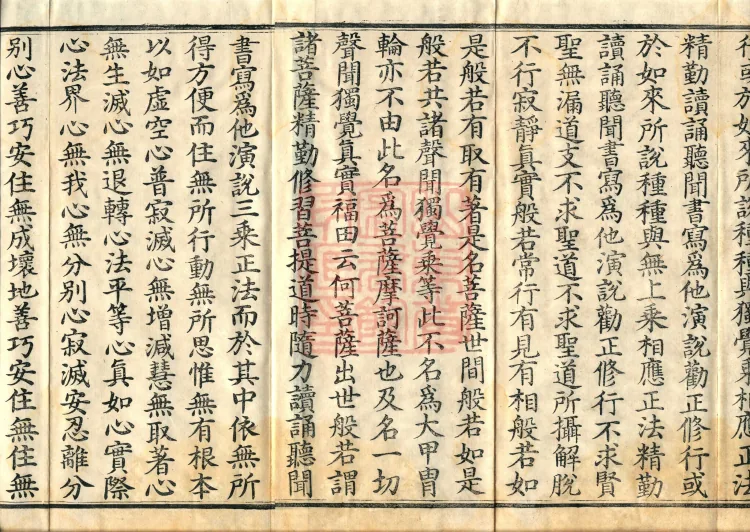 行或於如來所說種種與獨覺乘相應正法
精勤讀誦聽聞書寫爲他演說勸正修行或
於如來所說種種與無上乘相應正法精勤
讀誦聽聞書寫爲他演說勸正修行不求賢
聖無漏道支不求聖道不求聖道所攝解脫
不行寂靜眞實般若常行有見有相般若如
是般若有取有著是名菩薩世間般若如是
般若共諸聲聞獨覺乘等此不名爲大甲冑
輪亦不由此名爲菩薩摩訶薩也及名一切
聲聞獨覺眞實福田云何菩薩出世般若謂
諸菩薩精勤修習菩提道時隨力讀誦聽聞
書寫爲他演說三乘正法而於其中依無所
得方便而住無所行動無所思惟無有根本
以如虛空心普寂滅心無增減慧無取著心
無生滅心無退轉心法平等心眞如心實際
心法界心無我心無分別心寂滅安忍離分
別心善巧安住無成壞地善巧安住無住無